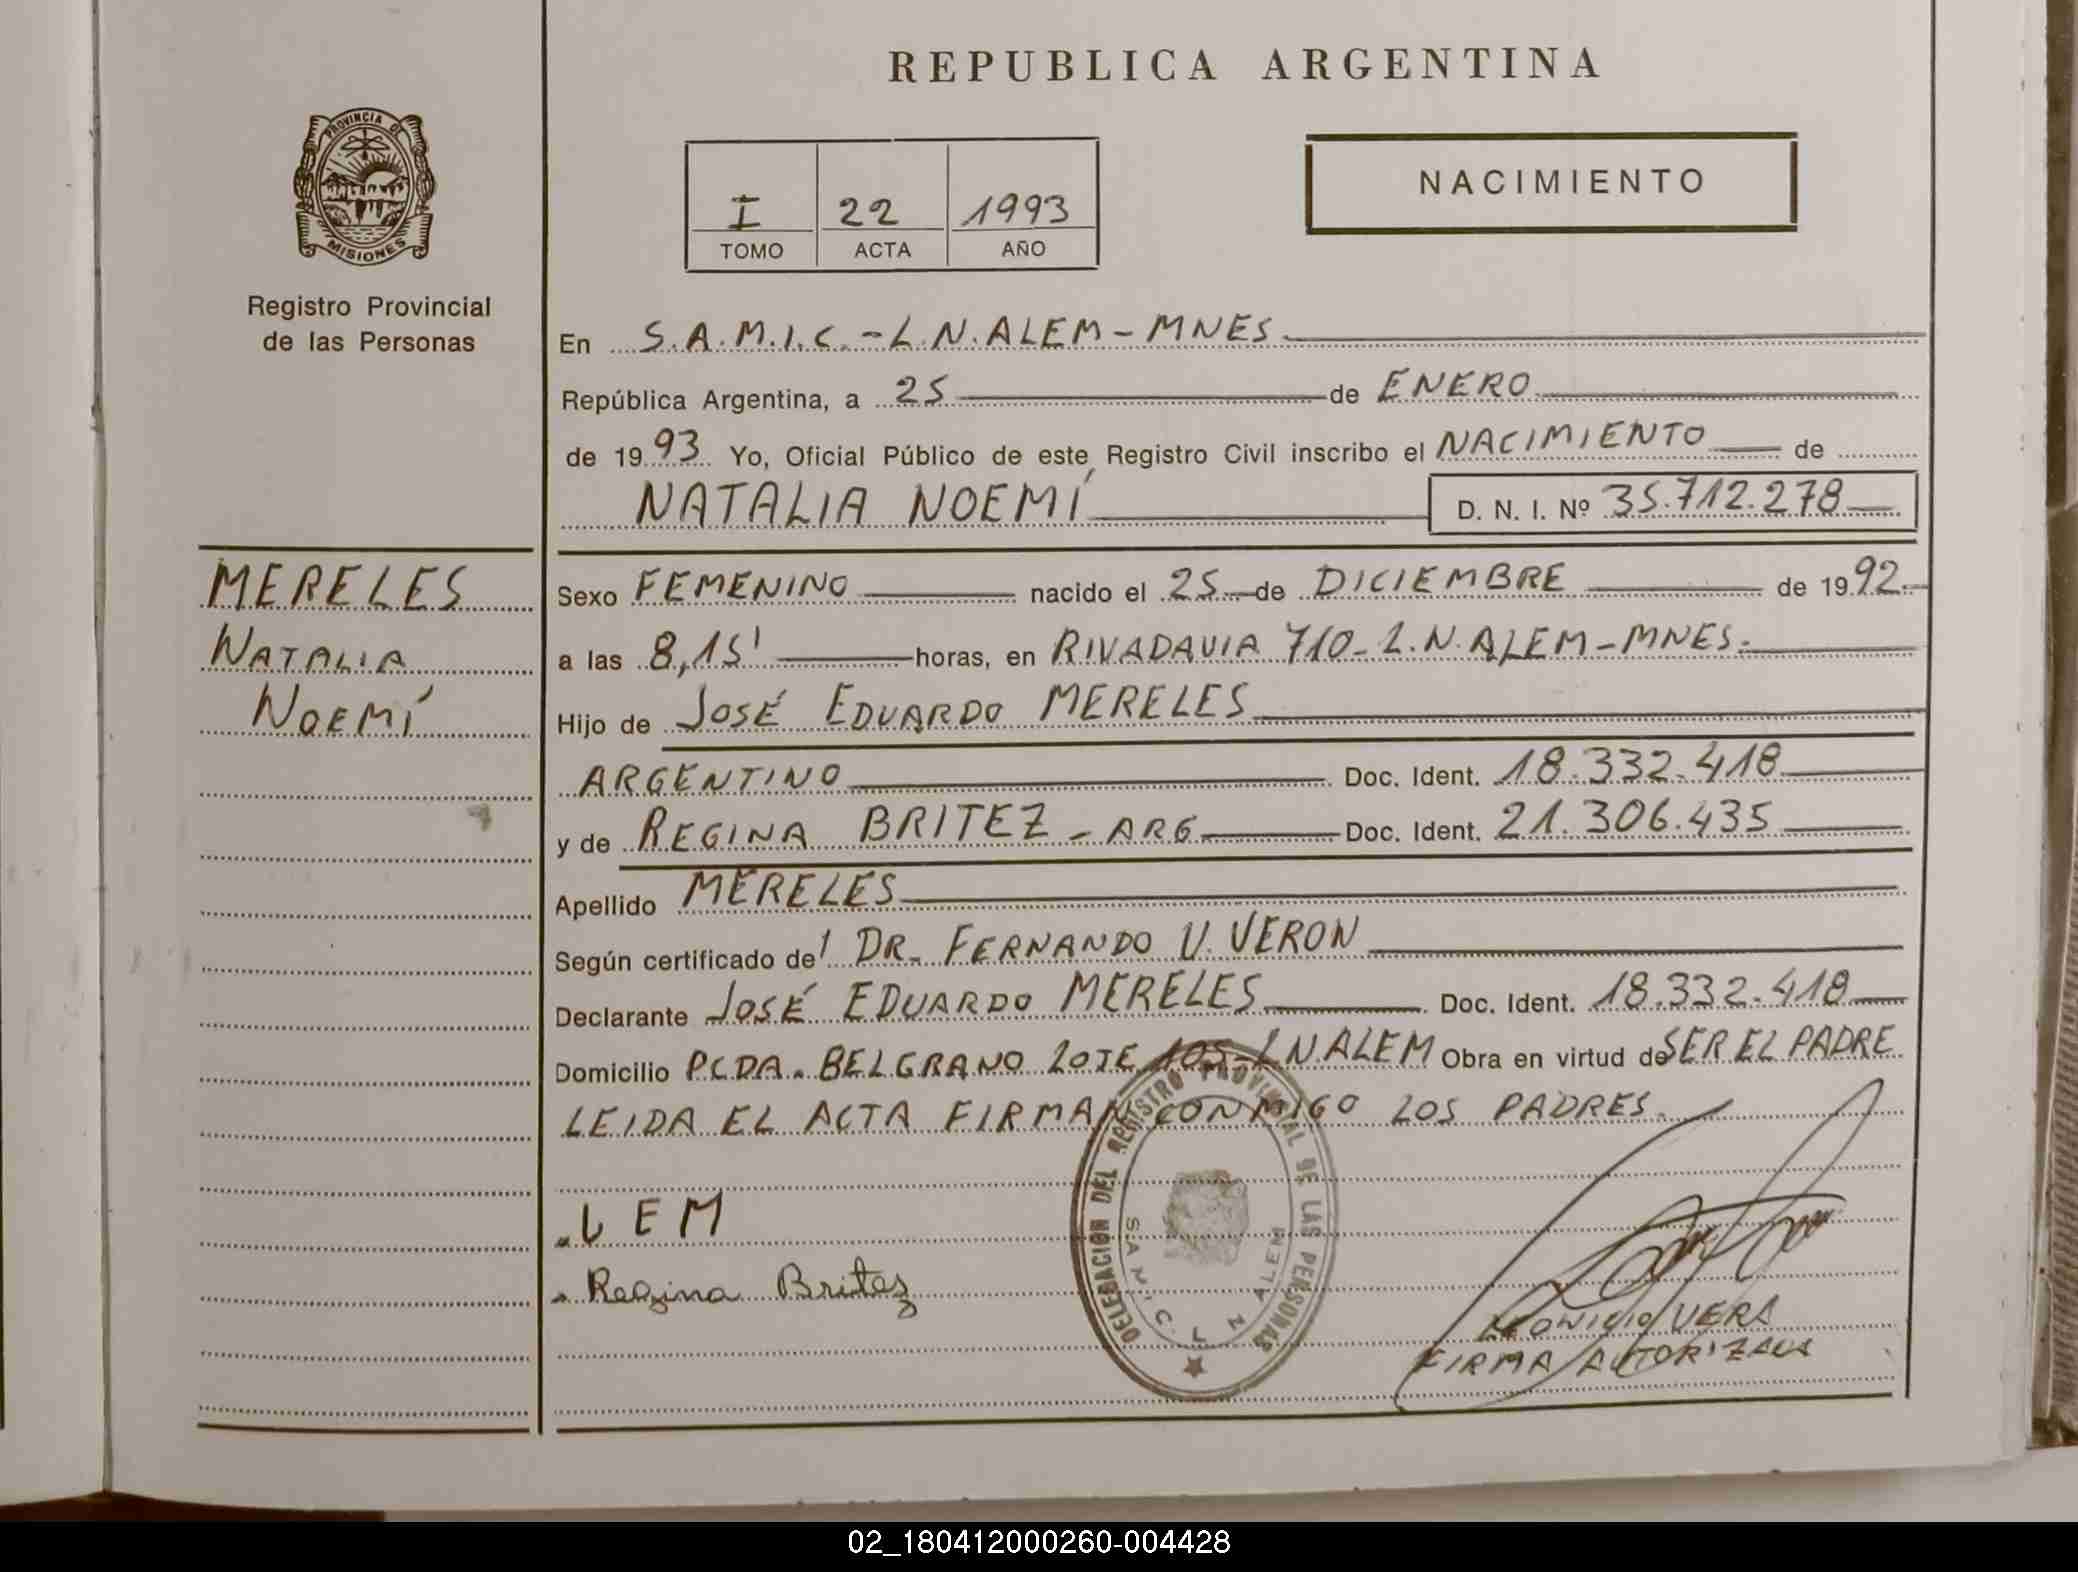 REPUBLICA ARGENTINA
PROVINCIA DE
MISIONES
Registro Provincial
de las Personas
I 22 1993
TOMO ACTA AÑO
NACIMIENTO
En S.A.M.I.C. - L.N. ALEM - MNES
República Argentina, a 25 de ENERO
de 1993 Yo, Oficial Público de este Registro Civil inscribo el NACIMIENTO de
NATALIA NOEMÍ D. N. I. Nº 35.712.278
MERELES
NATALIA
NOEMÍ
Sexo FEMENINO nacido el 25 de DICIEMBRE de 1992
a las 8,15' horas, en RIVADAVIA 710 - L.N. ALEM - MNES.
Hijo de JOSÉ EDUARDO MERELES
ARGENTINO Doc. Ident. 18.332.418
y de REGINA BRITEZ - ARG Doc. Ident. 21.306.435
Apellido MERELES
Según certificado de DR. FERNANDO U. VERON
Declarante JOSÉ EDUARDO MERELES Doc. Ident. 18.332.418
Domicilio PCDA. BELGRANO LOTE 105 - L N. ALEM Obra en virtud de SER EL PADRE
LEIDA EL ACTA FIRMAN CONMIGO LOS PADRES.
DELEGACION DEL REGISTRO PROVINCIAL DE LAS PERSONAS
L N ALEM
J E M
Regina Britez
VERA
FIRMA AUTORIZADA
02_180412000260-004428